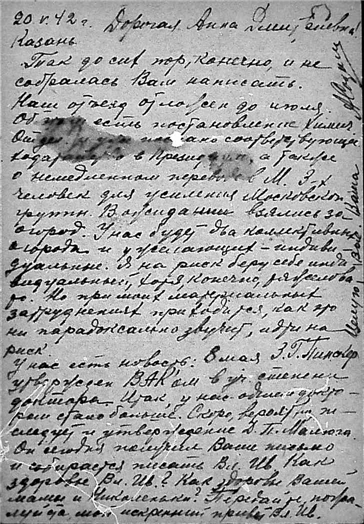 20 V. 42 г. Дорогая Анна Дмитриевна!
Казань
Так до сих пор, конечно, и не
собралась Вам написать.
Наш отъезд отложен до июля.
есть постановление Химич.
соответствующа
в Президиум, а также
о немедленном М. 3-х
человек для усиления Московской
группы. В ожидании взялись за
огород. У нас будет два коллективных
огорода и у желающих - индиви
дуальные. Я на риск беру себе инди
видуальный, хотя конечно,
Но при моих материальных
затруднениях приходится, как это
ни парадоксально звучит, идти на
риск.
У нас есть новость. 8 мая З.Г. Пинскер
утвержден ВАК'ом в уч. степени
доктора. Итак, у нас одним докто-
ром стало больше. Скоро, вероятно по-
следует и утверждение Д.П. Малюга.
Он сегодня получил Ваше письмо
и собирается писать Вл. Ив. Как
здоровье Вл. Ив.? Как здоровье Вашей
мамы и Николеньки? Передайте, пожа-
луйста мой искренний привет Вл. Ив.